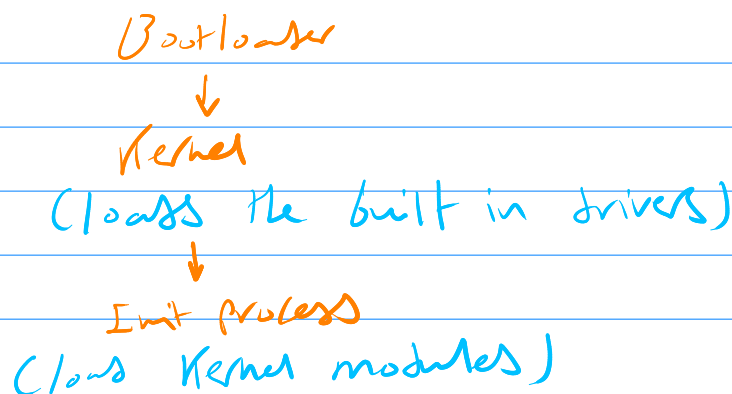 Bootloader
Kernel
(loads the built in drivers)
Init process
(load Kernel modules)